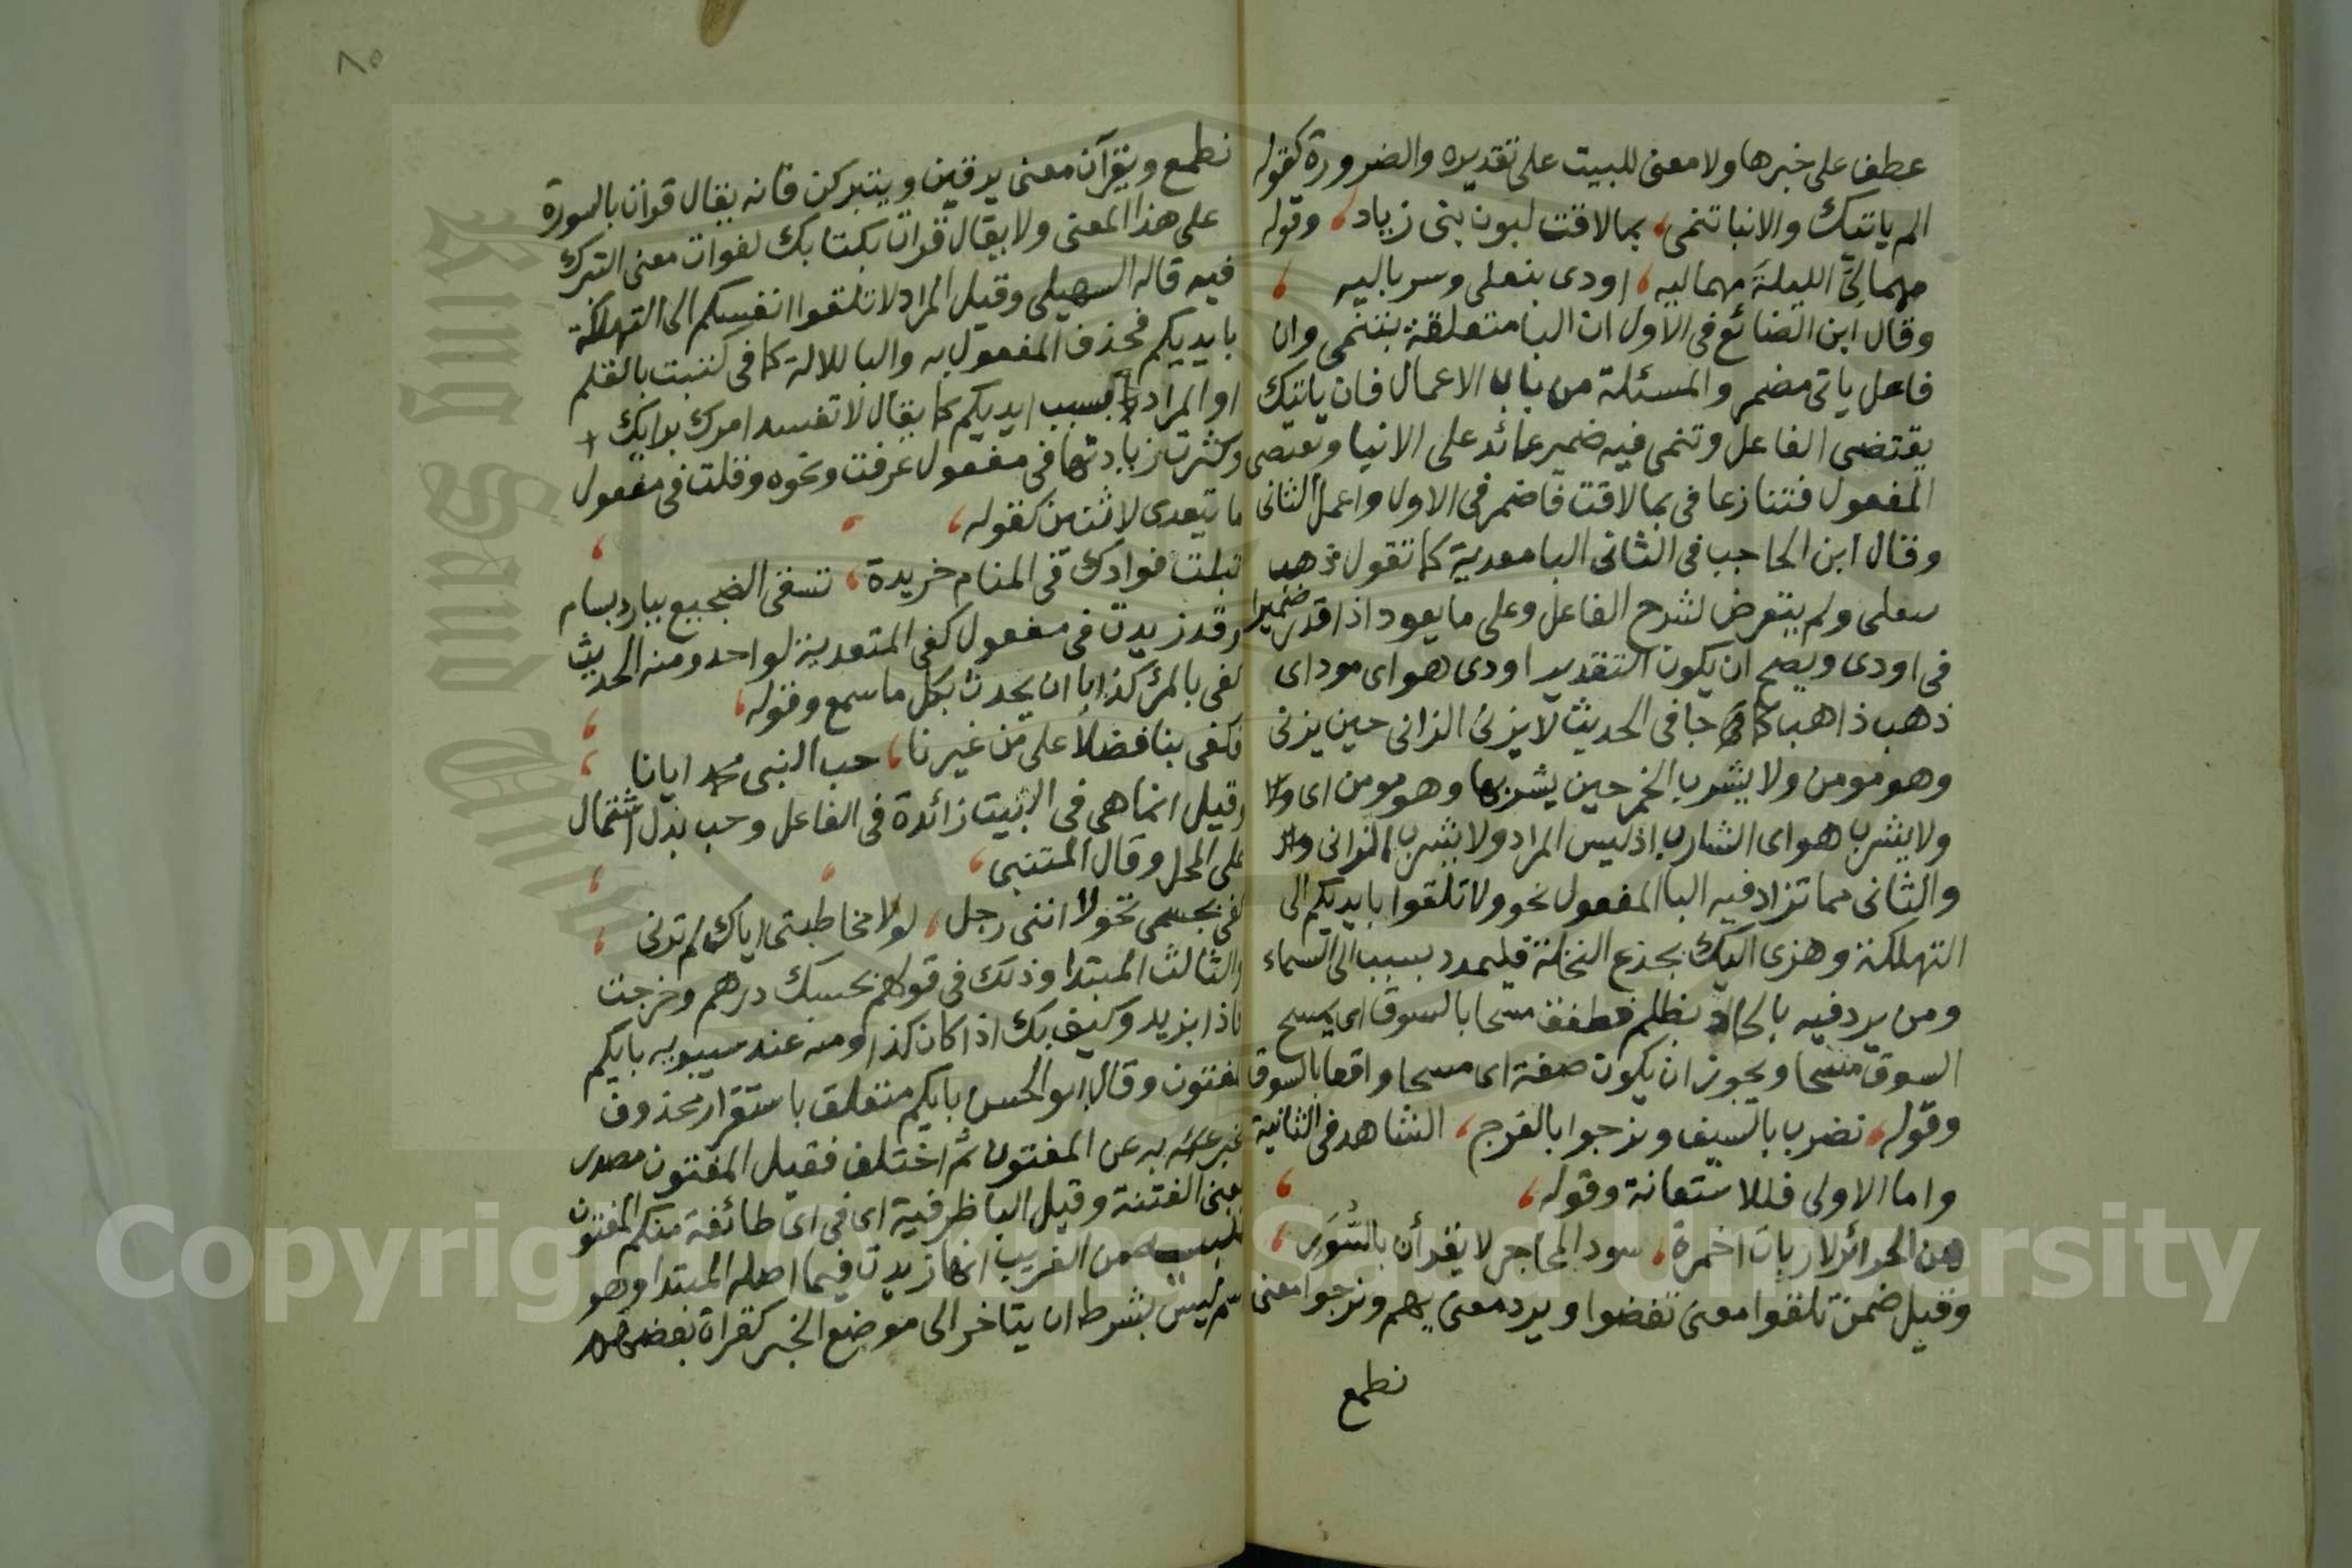 عطف على خبرها ولا معنى للبيت على تقديره والضرورة كقوله
الم ياتيك والانبا تنمى، بما لاقت لبون بنى زياد، وقوله
مهما لِيَ الليلةَ مهما ليه، اودى بنعلى وسرباليه،
وقال ابن الضائع فى الاول ان البا متعلقة بتنمى وان
فاعل ياتى مضمر والمسئلة من باب الاعمال فان ياتيك
يقتضى الفاعل وتنمى فيه ضمير عائد على الانبا وتقتضى
المفعول فتنازعا فى بما لاقت فاضمر فى الاول واعمل الثانى
وقال ابن الحاجب فى الثانى البا معدية كما تقول ذهب
بنعلى ولم يتعرض لشرح الفاعل وعلى ما يعود اذا قدر ضميرا
فى اودى ويصح ان يكون التقدير اودى هو اى مود اى
ذهب ذاهب كما جا فى الحديث لا يزنى الزانى حين يزنى
وهو مومن ولا يشرب الخمر حين يشربها وهو مومن اى
ولا يشرب هو اى الشارب اذ ليس المراد ولا يشرب الزانى
والثانى مما تزاد فيه البا المفعول نحو ولا تلقوا بايديكم الى
التهلكة وهزى اليك بجذع النخلة فليمدد بسبب الى السماء
ومن يرد فيه بالحاد بظلم فطفق مسحا بالسوق اى يمسح
السوق مسحا ويجوز ان يكون صفة اى مسحا واقعا بالسوق
وقوله، نضرب بالسيف ونرجوا بالفرج، الشاهد فى الثانية
واما الاولى فللاستعانة وقوله،
هن الحرائر لا ربات اخمرة، سود المحاجر لا يقرأن بالسُّوَرِ،
وقيل ضمن تلقوا معنى تفضوا ويرد معنى يهم ونرجوا معنى
نطمع
٨٥
نطمع ويقرآن معنى يرقين ويتبركن فانه يقال قرات بالسورة
على هذا المعنى ولا يقال قرات بكتابك لفوات معنى التبرك
فيه قاله السهيلى وقيل المراد لا تلقوا انفسكم الى التهلكة
بايديكم فحذف المفعول به والبا للالة كما فى كتبت بالقلم
او المراد بسبب ايديكم كما يقال لا تفسد امرك برايك
وكثرت زيادتها فى مفعول عرفت ونحوه وقلت فى مفعول
ما يتعدى لاثنين كقوله،
تبلت فوادك فى المنام خريدة، تسقى الضجيع ببارد بسام
وقد زيدت فى مفعول كفى المتعدية لواحد ومنه الحديث
كفى بالمرئ كذبا ان يحدث بكل ما سمع وقوله،
فكفى بنا فضلا على من غيرنا، حب النبى محمد ايانا،
وقيل انما هى فى البيت زائدة فى الفاعل وحب بدل اشتمال
على المحل وقال المتنبى،
كفى بجسمى نحولا اننى رجل، لولا مخاطبتى اياك لم ترنى،
والثالث المبتدا وذلك فى قولهم بحسبك درهم وخرجت
فاذا بزيد وكيف بك اذا كان كذا ومنه عند سيبويه بايكم
المفتون وقال ابو الحسن بايكم متعلق باستقرار محذوف
مخبر به عن المفتون ثم اختلف فقيل المفتون مصدر
بمعنى الفتنة وقيل البا ظرفية اى فى اى طائفة منكم المفتون
تنبيه من الغريب انها زيدت فيما اصله المبتدا وهو
اسم ليس بشرط ان يتاخر الى موضع الخبر كقراة بعضهم
Copyright © King Saud University